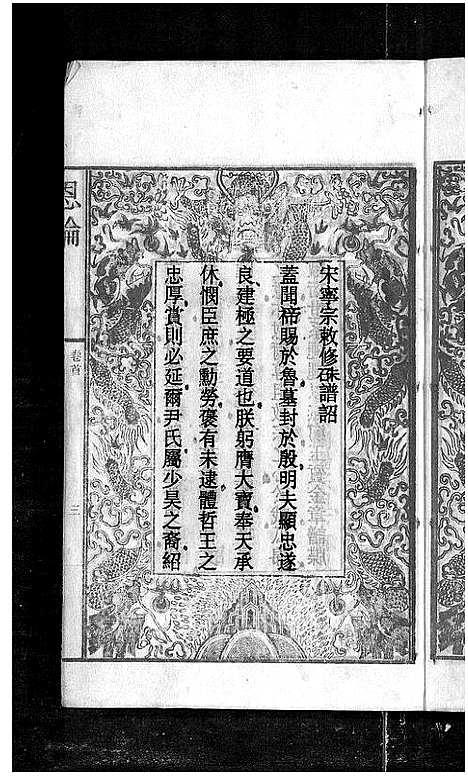 宋寧宗敕修硃譜詔
蓋聞禘賜於魯墓封於殷明夫顯忠遂
良建極之要道也朕躬膺大寶奉天承
休憫臣庶之勳勞褒有未逮體哲王之
忠厚賞則必延爾尹氏屬少昊之裔紹
恩綸
卷首
三